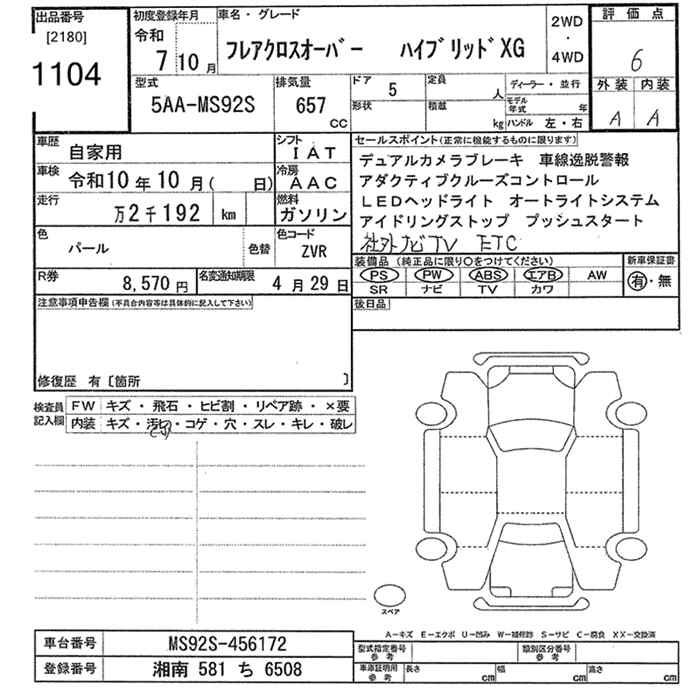 出品番号 初度登録年月 車名・グレード 2WD・4WD 評価点
[2180] 令和
1104 7 10月 フレアクロスオーバー ハイブリッドXG 6
型式 排気量 ドア 5 定員 人 ディーラー・並行 外装 内装
5AA-MS92S 657 CC 形状 積載 kg モデル年式 年 ハンドル 左・右 A A
車歴 自家用 シフト IAT セールスポイント(正常に機能するものに限ります)
車検 令和10年10月( 日) 冷房 AAC デュアルカメラブレーキ 車線逸脱警報
アダクティブクルーズコントロール
走行 万2千192 km 燃料 ガソリン LEDヘッドライト オートライトシステム
アイドリングストップ プッシュスタート
色 パール 色替 色コード ZVR 社外ナビTV ETC
装備品(純正品に限り○をつけてください) 新車保証書
R券 8,570円 名変通知期限 4月29日 PS PW ABS エアB AW 有・無
SR ナビ TV カワ
注意事項申告欄(不具合内容等は具体的に記入して下さい) 後日品
修復歴 有〔箇所 〕
検査員記入欄 FW キズ・飛石・ヒビ割・リペア跡・×要
内装 キズ・汚れ・コゲ・穴・スレ・キレ・破レ
スペア
A-キズ E-エクボ U-凹み W-補修跡 S-サビ C-腐食 XX-交換済
車台番号 MS92S-456172 型式指定番号参考 類別区分番号参考
登録番号 湘南 581 ち 6508 車庫証明用参考 長さ cm 幅 cm 高さ cm